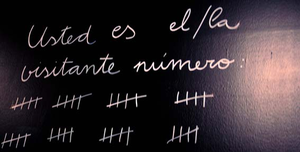 Usted es el/la
visitante número: